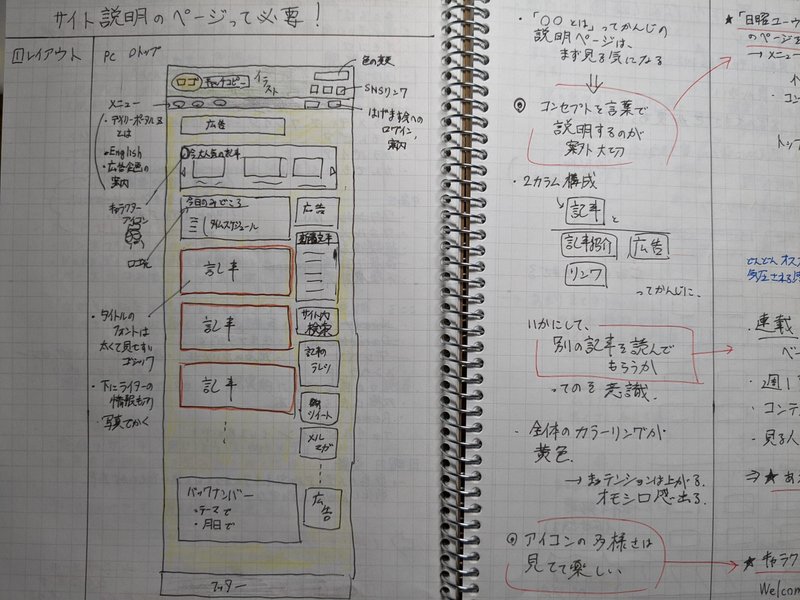 サイト説明のページって必要!
1 レイアウト
PC ①トップ
色の変更
SNSリンク
はげます会への
ログイン,
案内
ロゴ
キャッチコピー
イラスト
メニュー
・デイリーポータルZ
とは
・English
・広告企画の
案内
キャラクター
アイコン
ロゴ化
広告
今大人気の記事
今日のみどころ
タイムスケジュール
広告
新着記事
記事
サイト内
検索
記事
記事の
ツイート
記事
メル
マガ
・タイトルの
フォントは
太くて見やすい
ゴシック
・下にライターの
情報もあり
・写真でかく
バックナンバー
・テーマで
・月日で
広告
フッター
・「○○とは」ってかんじの
説明ページは、
まず見る気になる
◎ コンセプトを言葉で
説明するのが
案外大切
・2カラム構成
記事 と
記事紹介 広告
リンク
ってかんじに、
いかにして、
別の記事を読んで
もらうか
ってのを意識.
・全体のカラーリングが
黄色.
オモシロ感出る.
◎ アイコンの多様さは
見てて楽しい
★「日曜ユーウ
のページを
→メニュー
・コン
トップ
どんどんオス
・連載
ベー
・週1
・コンテ
・見る人
⇒★ あ
★ キャラク
Welcom